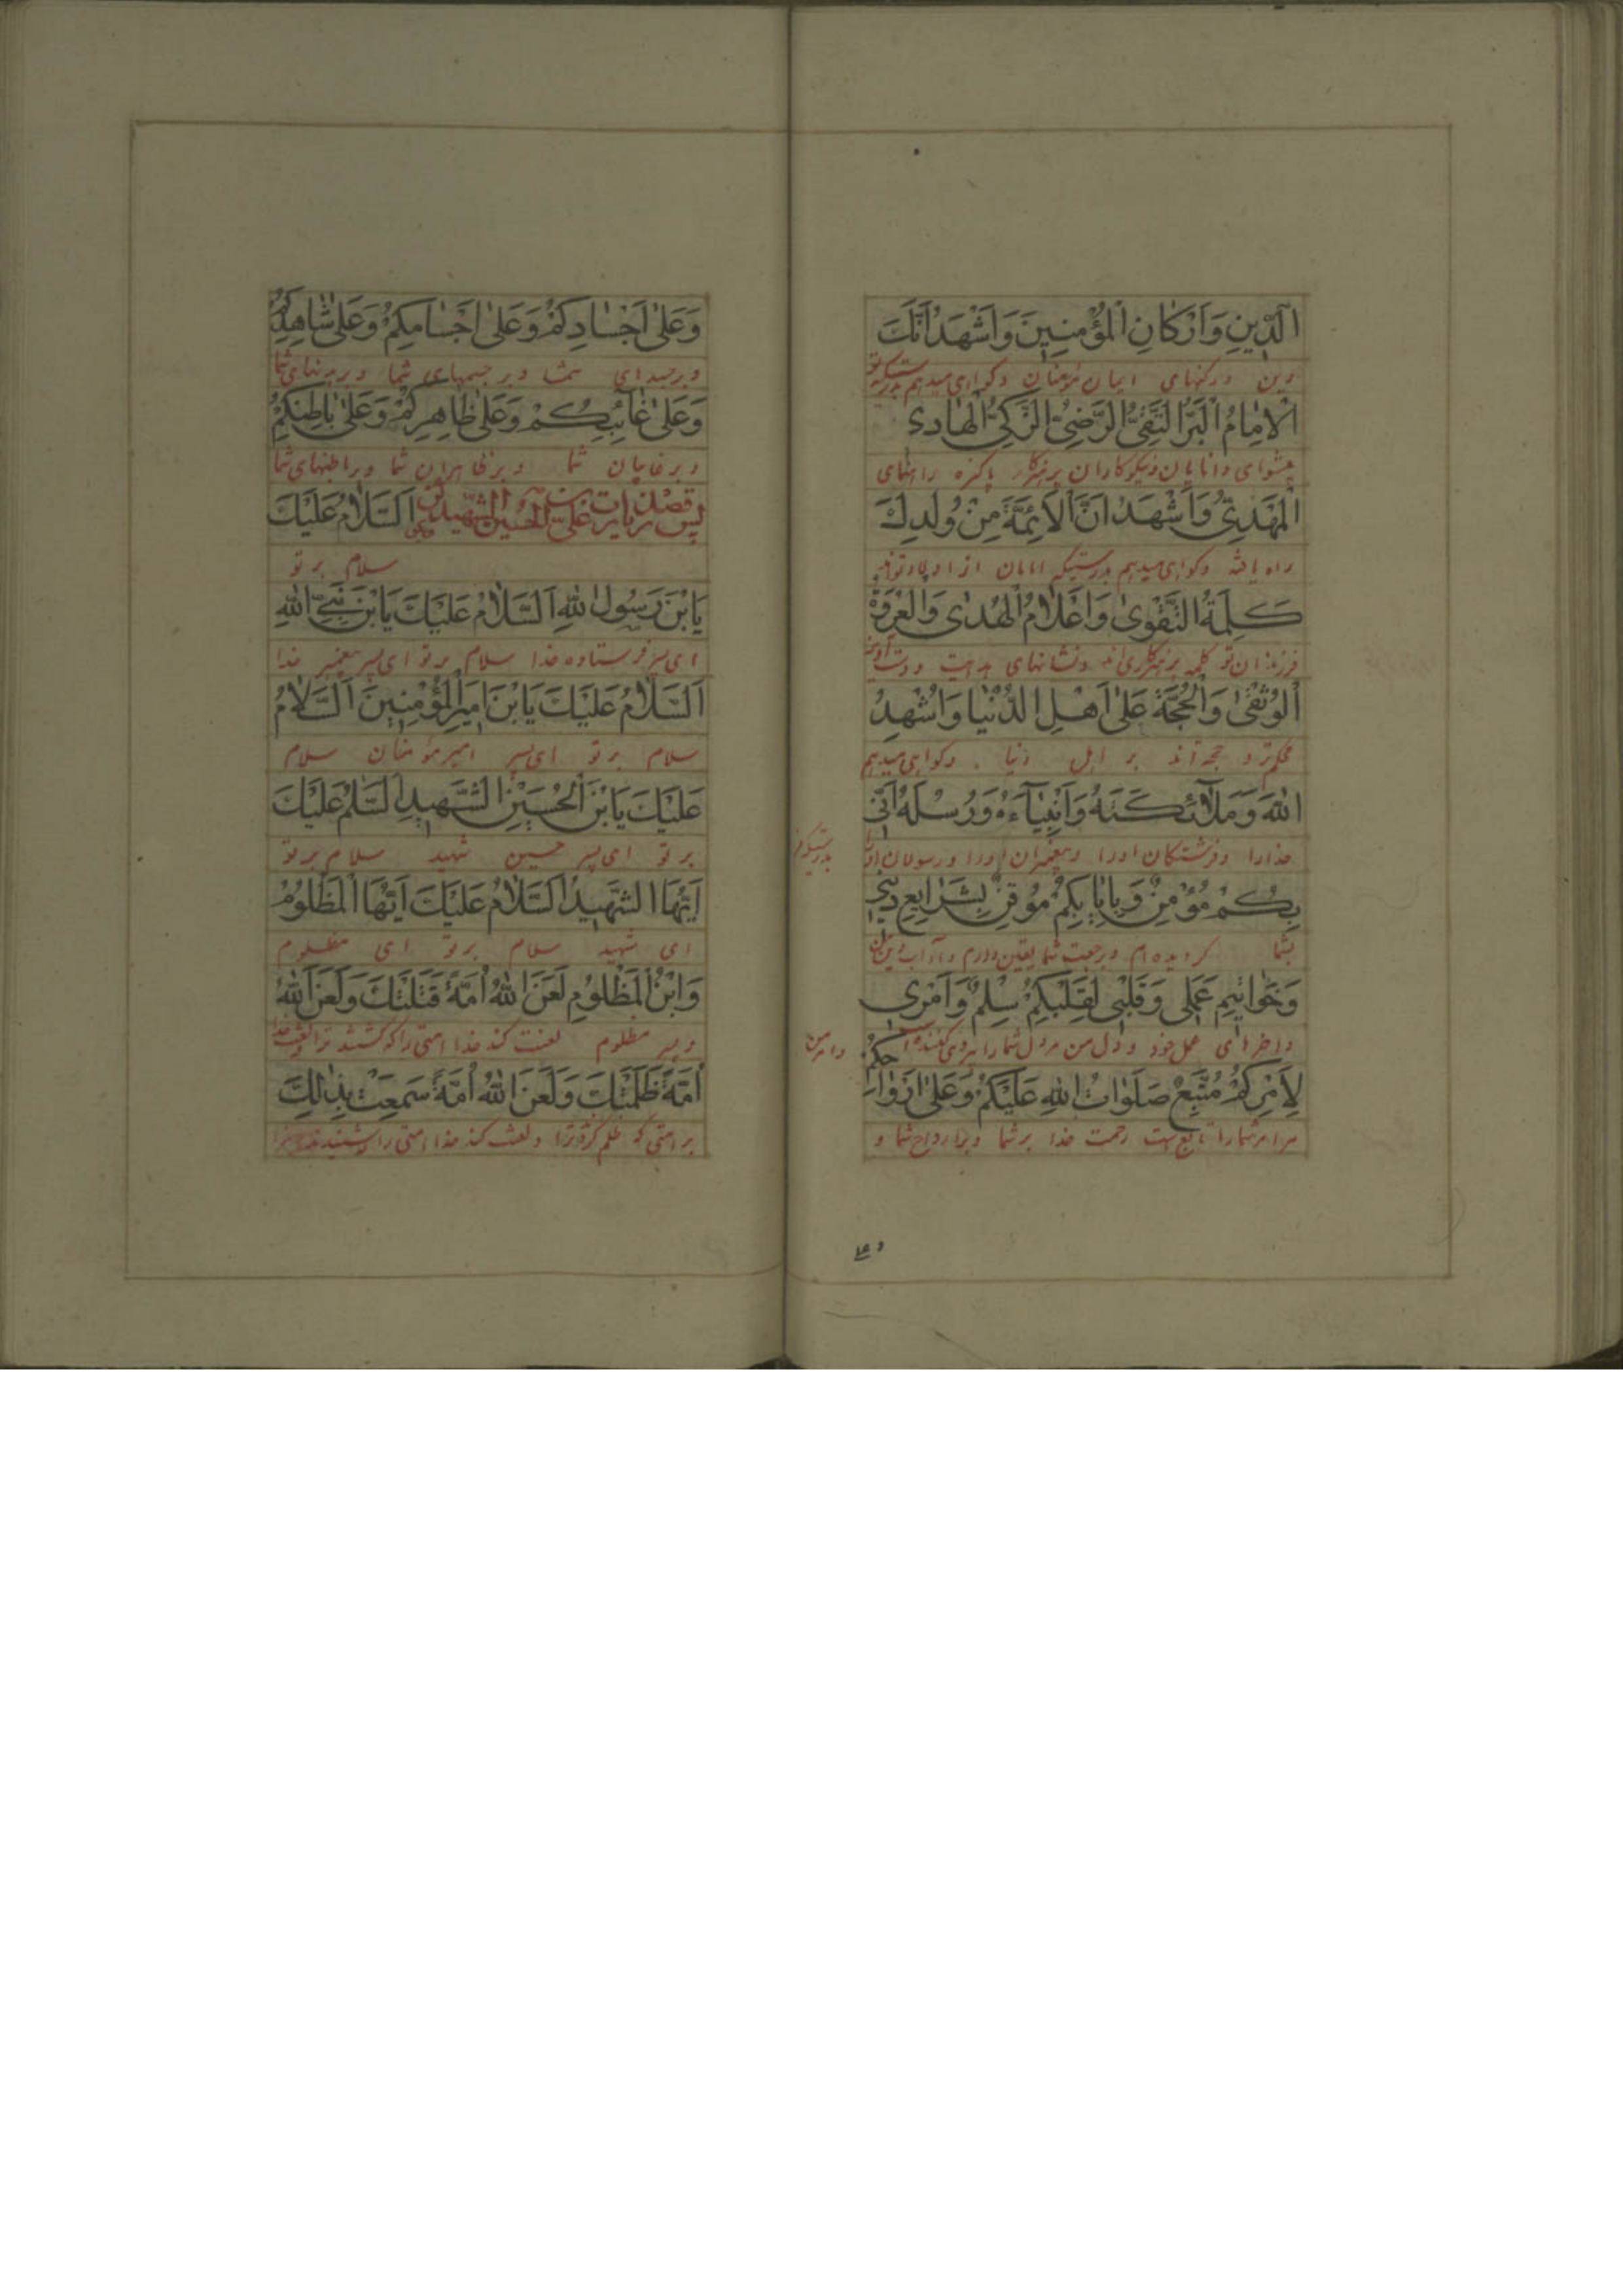 الدِّينِ وَاَرْكانِ الْمُؤْمِنِينَ وَاَشْهَدُ اَنَّكَ
دین ورکنهای ایمان مؤمنان وکواهی میدهم بدرستیکه تو
الْاِمامُ الْبَرُّ التَّقِىُّ الرَّضِىُّ الزَّكِىُّ الْهادِى
پیشوای دانایان ونیکوکاران پرهیزکار پاکیزه راهنمای
الْمَهْدِىُّ وَاَشْهَدُ اَنَّ الْاَئِمَّةَ مِنْ وُلْدِكَ
راه یافته وکواهی میدهم بدرستیکه امامان از اولاد تواند
كَلِمَةُ التَّقْوىٰ وَاَعْلامُ الْهُدىٰ وَالْعُرْوَةُ
فرزندان تو کلمه پرهیزکاری اند ونشانهای هدایت ودست آویز
الْوُثْقىٰ وَالْحُجَّةُ عَلىٰ اَهْلِ الدُّنْيا وَاُشْهِدُ
محکم‌تر و حجه‌اند بر اهل دنیا وکواهی میدهم
اللهَ وَمَلآئِكَتَهُ وَاَنْبِيآءَهُ وَرُسُلَهُ اَنّى
خدارا وفرشتکان اورا وپیغمبران اورا ورسولان اورا
بدرستیکه من
بِكُمْ مُؤْمِنٌ وَبِاِيابِكُمْ مُوقِنٌ بِشَرايِعِ دينى
بشما کرویده‌ام وبرجعت شما یقین دارم وآداب دین من
وَخَواتيمِ عَمَلى وَقَلْبى لِقَلْبِكُمْ سِلْمٌ وَاَمْرى
واخرهای عمل خود ودل من مر دل شما را پیروی کننده است
وامر من
لِاَمْرِكُمْ مُتَّبِعٌ صَلَواتُ اللهِ عَلَيْكُمْ وَعَلىٰ اَرْواحِكُمْ
مر امر شمارا تابع است رحمت خدا بر شما وبر ارواح شما و
وَعَلىٰ اَجْسادِكُمْ وَعَلىٰ اَجْسامِكُمْ وَعَلىٰ شاهِدِكُمْ
وبر جسدهای شما وبر جسمهای شما وبر بدنهای شما
وَعَلىٰ غآئِبِكُمْ وَعَلىٰ ظاهِرِكُمْ وَعَلىٰ باطِنِكُمْ
وبر غایبان شما وبر ظاهران شما وبر باطنهای شما
پس قصد زیارت علی بن الحسین الشهیدین اَلسَّلامُ عَلَيْكَ
سلام بر تو
يَابْنَ رَسُولِ اللهِ اَلسَّلامُ عَلَيْكَ يَابْنَ نَبِىِّ اللهِ
ای پسر فرستاده خدا سلام بر تو ای پسر پیغمبر خدا
اَلسَّلامُ عَلَيْكَ يَابْنَ اَميرِ الْمُؤْمِنينَ اَلسَّلامُ
سلام بر تو ای پسر امیر مؤمنان سلام
عَلَيْكَ يَابْنَ الْحُسَيْنِ الشَّهيدِ اَلسَّلٰمُ عَلَيْكَ
بر تو ای پسر حسین شهید سلام بر تو
اَيُّهَا الشَّهيدُ اَلسَّلامُ عَلَيْكَ اَيُّهَا الْمَظْلُومُ
ای شهید سلام بر تو ای مظلوم
وَابْنُ الْمَظْلُومِ لَعَنَ اللهُ اُمَّةً قَتَلَتْكَ وَلَعَنَ اللهُ
وپسر مظلوم لعنت کند خدا امتی را که کشتند ترا ولعنت خدا
اُمَّةً ظَلَمَتْكَ وَلَعَنَ اللهُ اُمَّةً سَمِعَتْ بِذٰلِكَ
بر امتی که ظلم کرد ترا ولعنت کند خدا امتی را